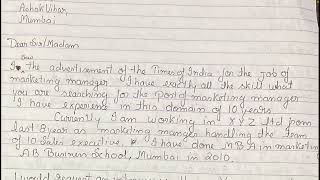 Ashok Vihar,
Mumbai
Dear Sir/Madam
saw
I the advertisement of the Times of India for the job of
marketing manager. I have exactly all the skill what
you are searching for the post of marketing manager
I have experience in this domain of 10 years
Currently I am working in XYZ ltd from
last 8 year as marketing manager handling the team
of 10 Sales executive. I have done MBA in marketing
AB Business School, Mumbai in 2010.
I would request an